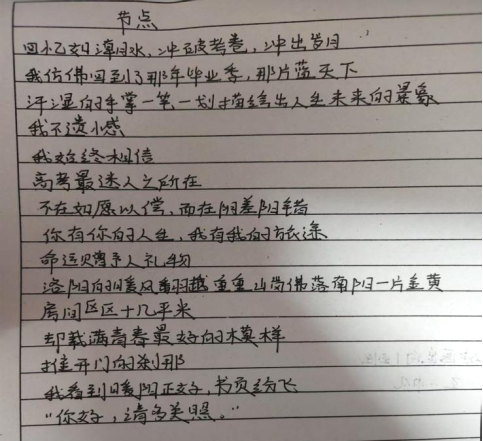 节点
回忆如潭水，冲破考卷，冲出岁月
我仿佛回到了那年毕业季，那片蓝天下
汗湿的手掌一笔一划描绘出人生未来的景象
我不遗憾
我始终相信
高考最迷人之所在
不在如愿以偿，而在阴差阳错
你有你的人生，我有我的旅途
命运赠予人礼物
洛阳的暖风翻越重重山峦拂落南阳一片金黄
房间区区十几平米
却载满青春最好的模样
推开门的刹那
我看到暖阳正好，书页纷飞
“你好，请多关照。”